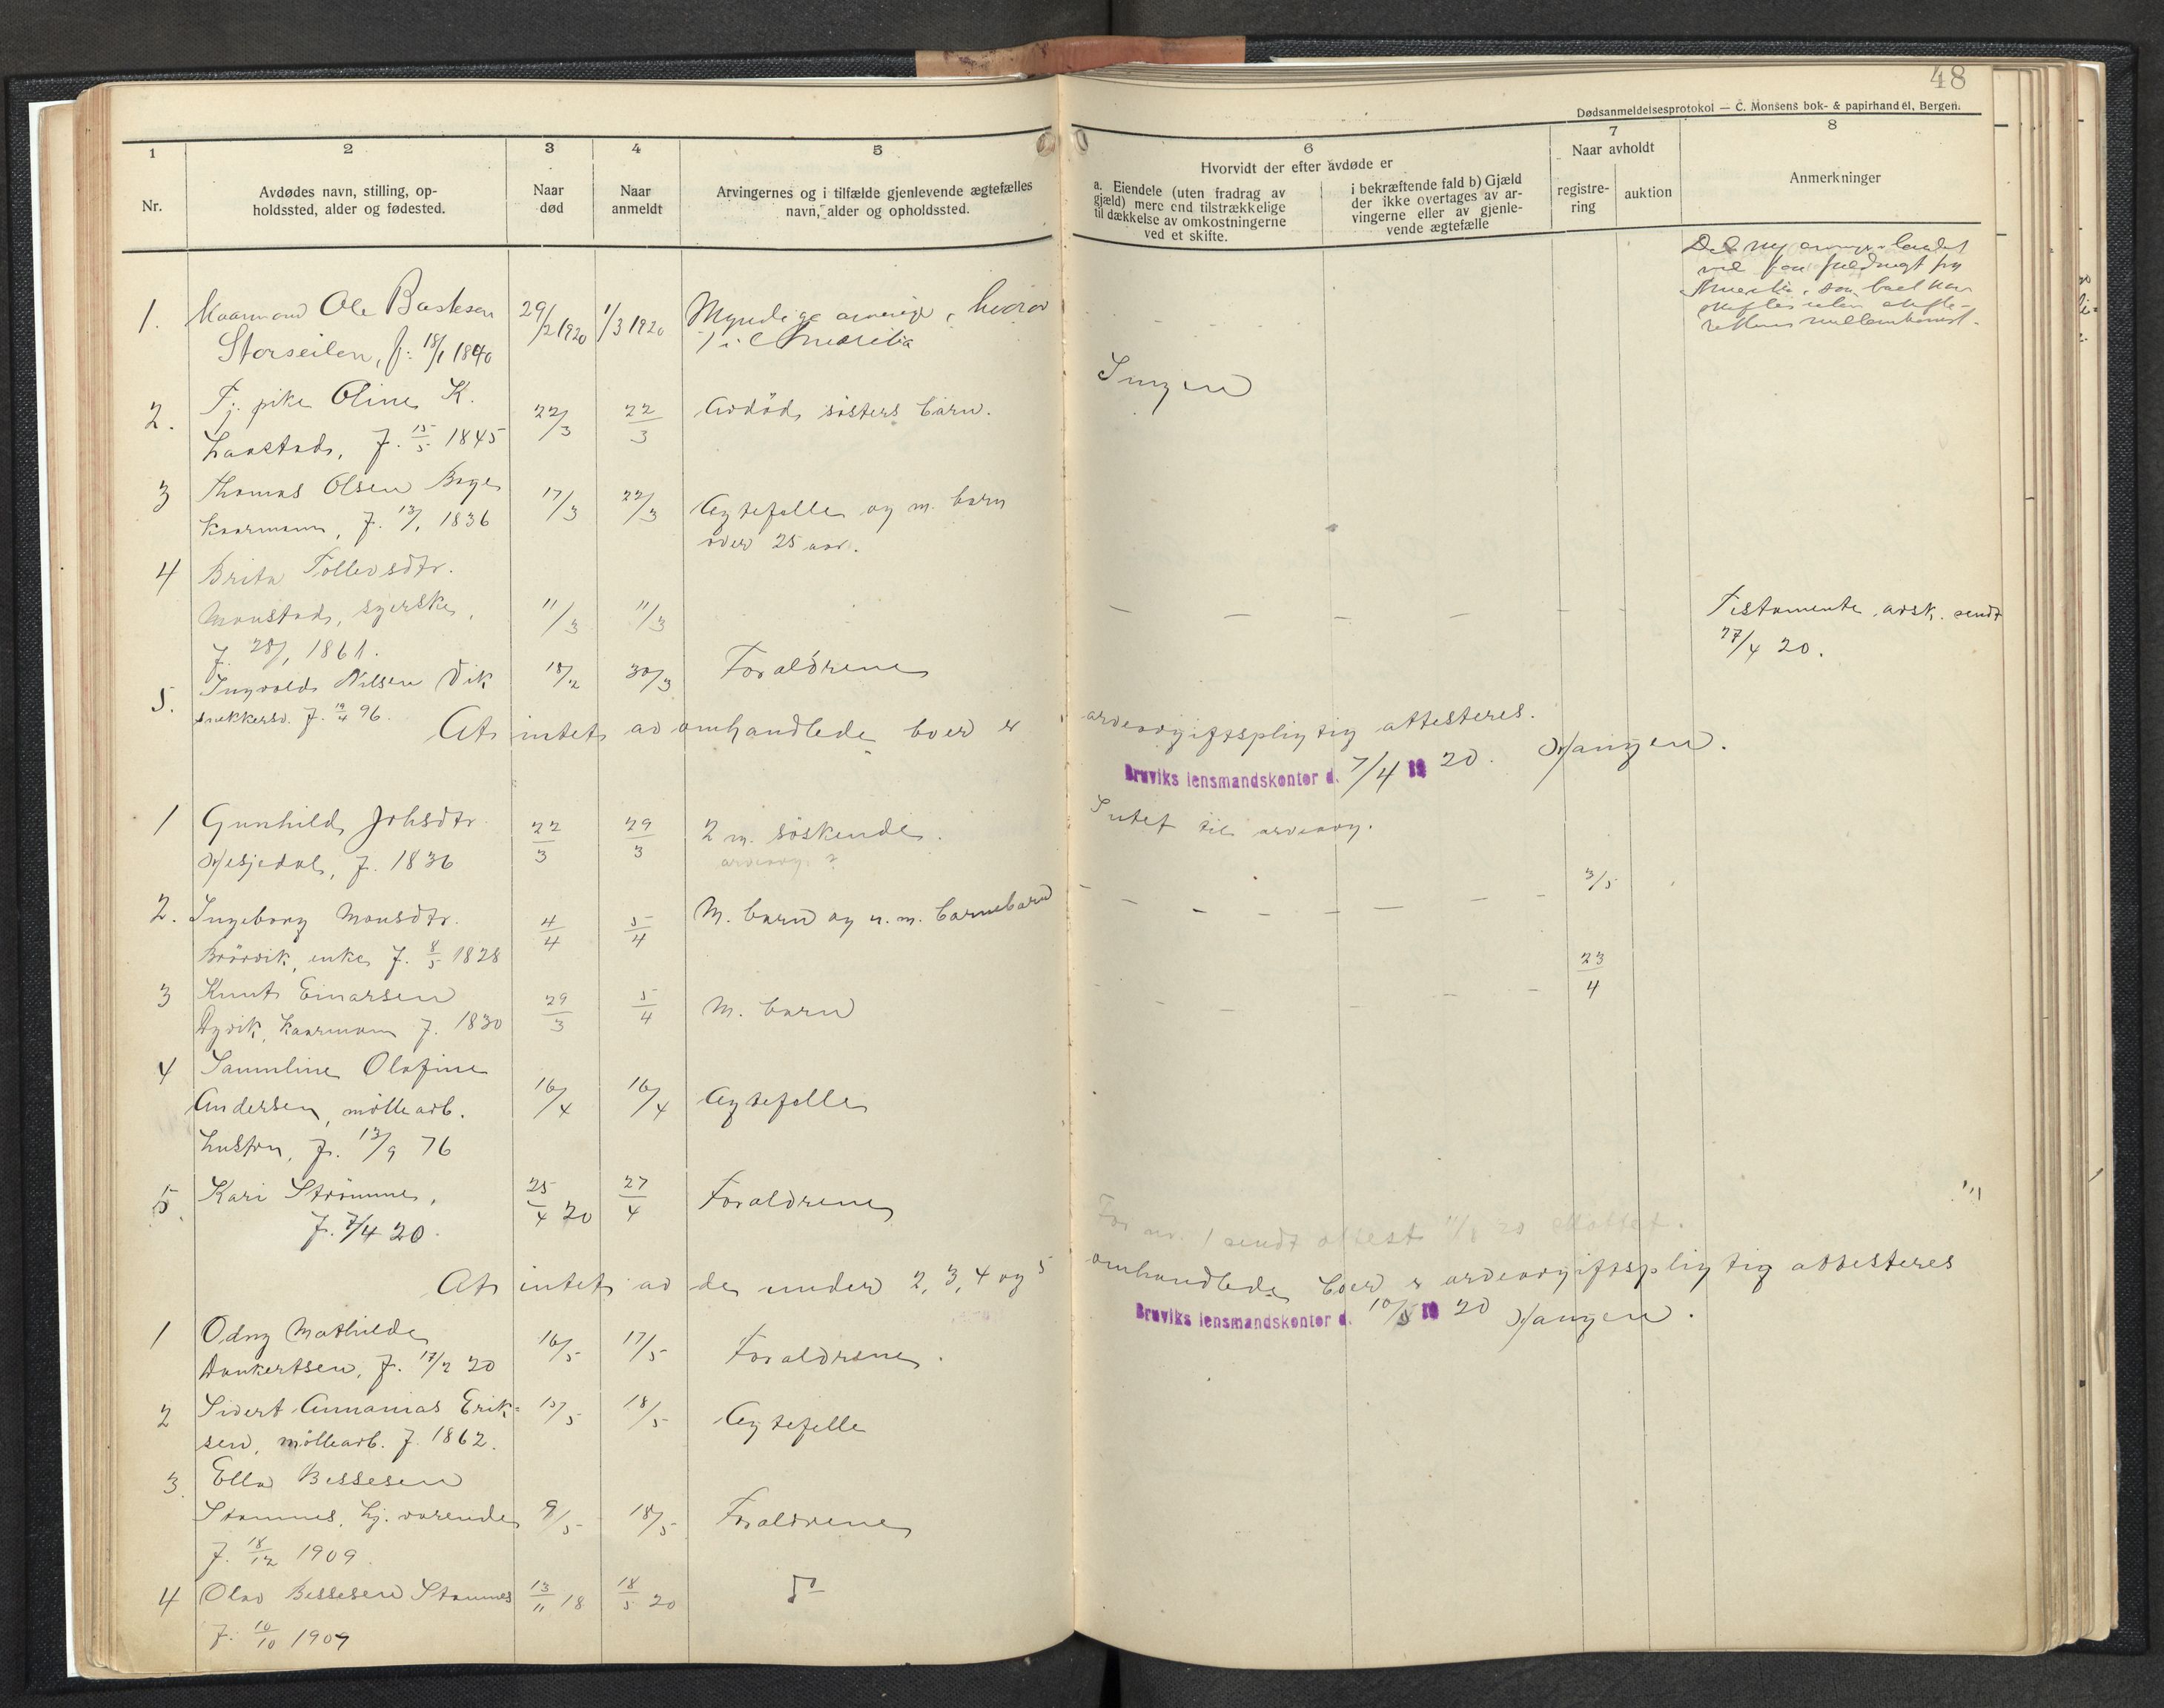 48
Dødsanmeldelsesprotokol — C. Monsens bok- & papirhandel, Bergen.
1
Nr.
2
Avdødes navn, stilling, op-
holdssted, alder og fødested.
3
Naar
død
4
Naar
anmeldt
5
Arvingernes og i tilfælde gjenlevende ægtefælles
navn, alder og opholdssted.
6
Hvorvidt der efter avdøde er
a. Eiendele (uten fradrag av
gjæld) mere end tilstrækkelige
til dækkelse av omkostningerne
ved et skifte.
i bekræftende fald b) Gjæld
der ikke overtages av ar-
vingerne eller av gjenle-
vende ægtefælle
7
Naar avholdt
registre-
ring
auktion
8
Anmerkninger
1. Kaarmand Ole
Storseilen, f: 18/1 1840
29/2 1920
1/3 1920
Myndige arvinger, hvorav
1 i Amerika
2. Fj. pike Oline K.
f. 15/5 1845
22/3
22/3
Avdöd sösters barn.
Ingen
3 Thomas Olsen Boge
kaarmann, f. 13/1 1836
17/3
22/3
Ægtefelle og m. barn
over 25 aar.
4 Brita Tollevsdtr.
Monstad, syerske,
f. 28/1 1861.
11/3
11/3
Testamente avsk. sendt
27/4 20.
5. Ingvald Nilsen Vik
snekkersv. f. 19/4 96.
18/2
30/3
Foraldrene
At intet av omhandlede boer er arveavgiftspligtig attesteres.
Bruviks lensmandskontor d. 7/4 19 20. Hangen.
1 Gunhild Johsdtr.
Hesjedal, f. 1836
22/3
29/3
2 m. söskende.
arveavg. ?
Intet til arveavg.
3/5
2. Ingeborg Monsdtr.
enke f. 8/5 1828
4/4
5/4
M. barn og u. m. barnebarn
23/4
3 Knut Einarsen
Dyvik, kaarmann f. 1830
29/3
5/4
M. barn
4 Samuline Olofine
Andersen, möllearb.
hustru, f. 13/9 76
16/4
16/4
Ægtefelle
5. Kari Strömme,
f. 7/4 20.
25/4 20
27/4
Foraldrene
For nr. 1 sendt attest
At intet av de under 2, 3, 4 og 5 omhandlede boer er arveavgiftspligtig attesteres
Bruviks lensmandskontor d. 10/5 19 20 Hangen.
1 Odny Mathilde
Dankertsen, f. 17/2 20
16/5
17/5
Foraldrene.
2 Sivert Annanias Erik-
sen, möllearb. f. 1862.
15/5
18/5
Ægtefelle
3. Ella Bessesen
Stamnes, hj. varende
f. 18/12 1909.
9/5
18/5
Foraldrene
4 Olav Bessesen Stamnes
f. 10/10 1907
13/11 18
18/5 20
do